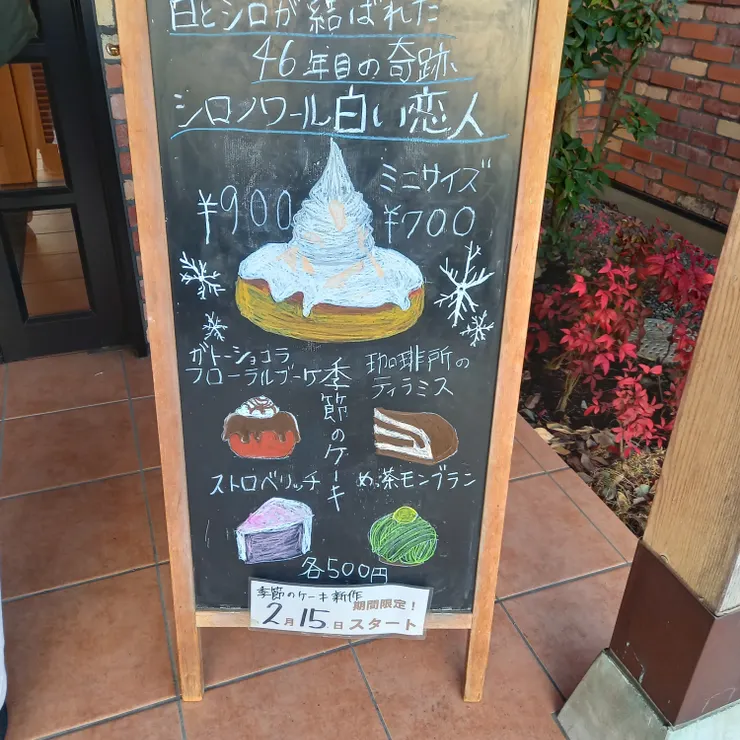 白とシロが結ばれた
46年目の奇跡
シロノワール白い恋人
ミニサイズ
¥900
¥700
ガトーショコラ
フローラルブーケ
季節のケーキ
珈琲所の
ティラミス
ストロベリッチ
めっ茶モンブラン
各500円
季節のケーキ新作
期間限定!
2月15日スタート